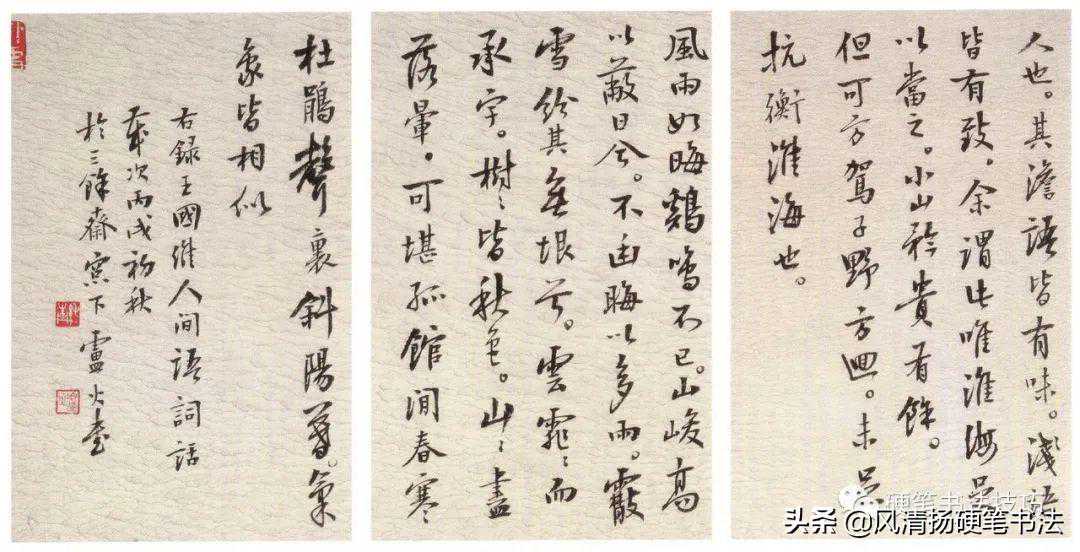 人也。其澹語皆有味。淺語
皆有致。余謂此唯淮海足
以當之。小山矜貴有餘。
但可方駕子野方回。未足
抗衡淮海也。
風雨如晦鷄鳴不已。山峻高
以蔽日兮。下幽晦以多雨。霰
雪紛其無垠兮。雲霏〻而
承宇。樹〻皆秋色。山〻盡
落暈。可堪孤館閒春寒
杜鵑聲裏斜陽暮。氣
象皆相似
右録王國維人间語詞話
歲次丙戌初秋
於三餘齋窗下盧
硬笔书法技巧
头条 @风清扬硬笔书法